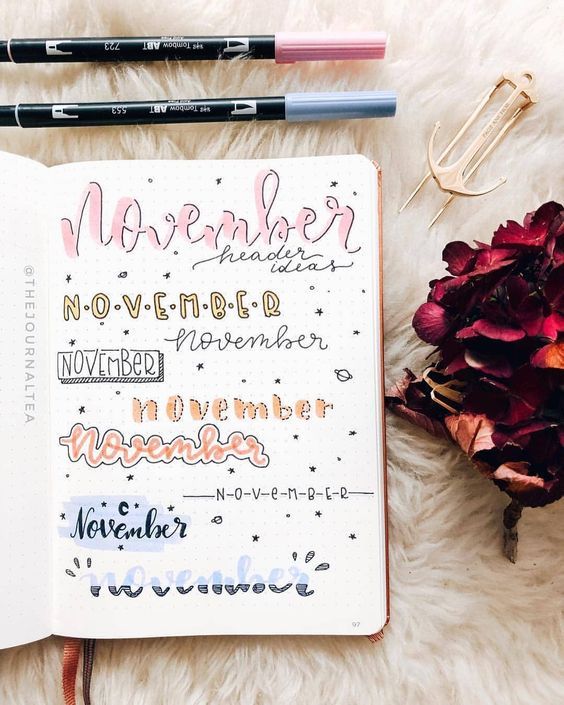 723 ABT Tombow
553 ABT Tombow
November
header
ideas
N·O·V·E·M·B·E·R
november
NOVEMBER
november
november
N-O-V-E-M-B-E-R
November
november
97
@THEJOURNALTEA